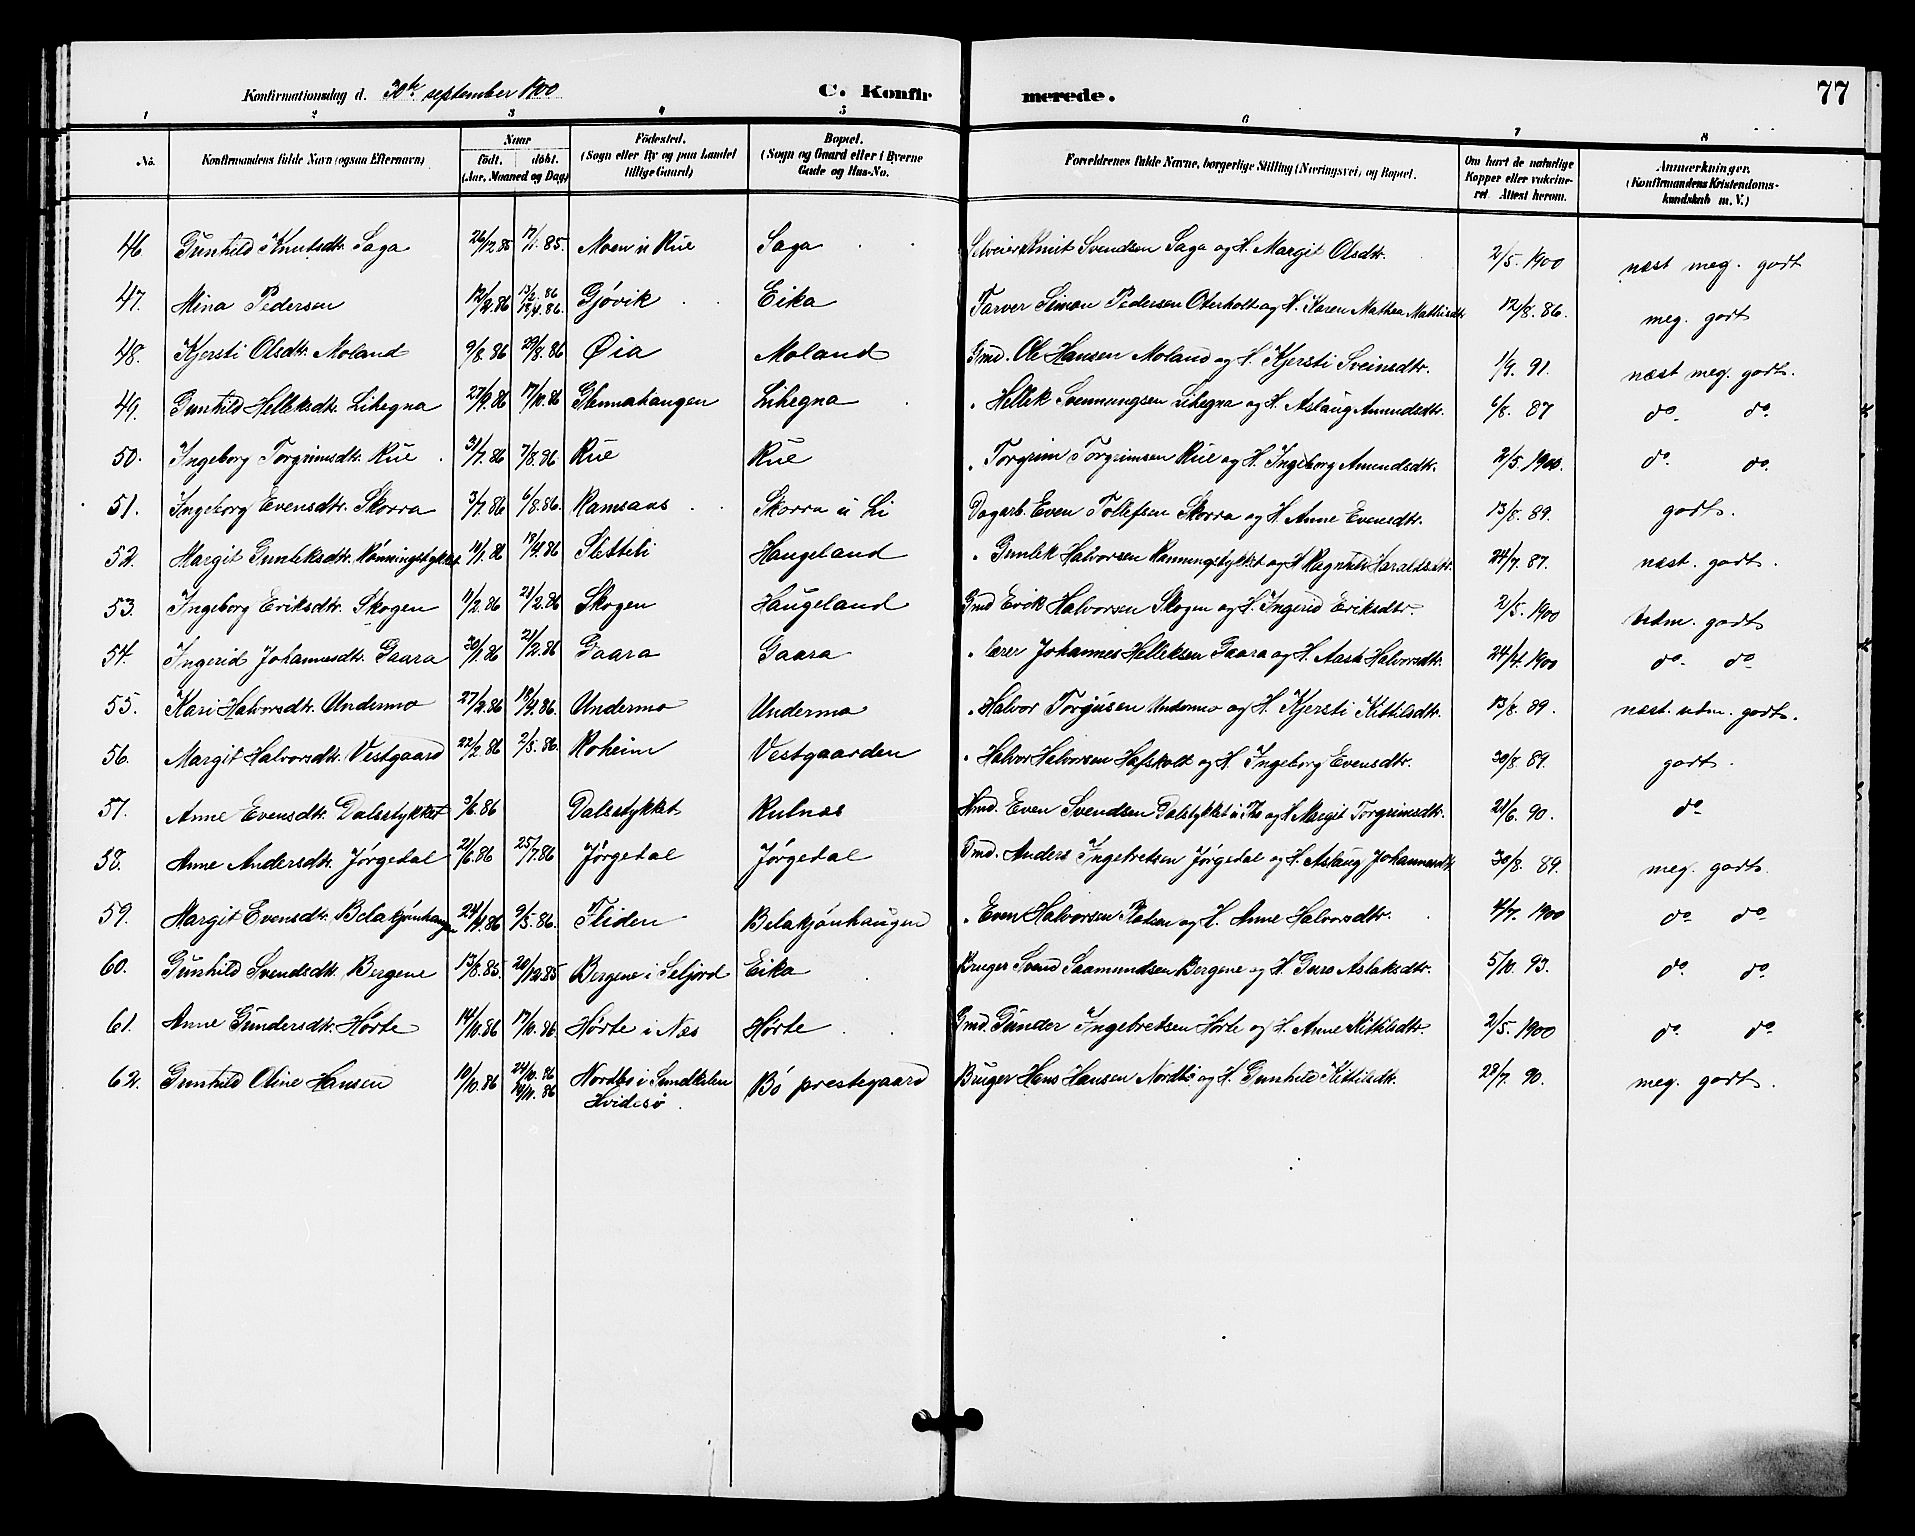 Konfirmationsdag d. 30te september 1900 C. Konfirmerede. 77
1 2 3 4 5 6 7 8
No. Konfirmandens fulde Navn (ogsaa Efternavn) Naar født. døbt. (Aar, Maaned og Dag) Fødested. (Sogn eller By og paa Landet tillige Gaard) Bopæl. (Sogn og Gaard eller i Byerne Gade og Hus-No. Forældrenes fulde Navne, borgerlige Stilling (Næringsvei) og Bopæl. Om havt de naturlige Kopper eller vakcineret Attest herom. Anmærkninger. (Konfirmandens Kristendomskundskab m. V.)
46. Gunhild Knutsdtr. Saga 26/12 85 17/1. 85. Moen u Rue Saga Selveier Knut Svendsen Saga og H. Margit Olsdtr. 2/5. 1900 næst meg. godt
47. Mina Pedersen 12/2. 86 Gjøvik Eika Farver Simon Pedersen Oterholt og H. Karen Mathea Mathisdtr 12/8. 86. meg. godt
48. Kjersti Olsdtr. Moland 9/8. 86 29/8. 86 Øia Moland Gmd. Ole Hansen Moland og H. Kjersti Sveinsdtr. 1/9. 91. næst meg. godt.
49. Gunhild Helleksdtr. Lihegna 27/9. 86 17/10 86 Glennahaugen Lihegna " Hellik Svennungsen Lihegna og H. Aslaug Amundsdtr. 6/8. 87 do do
50. Ingeborg Torgrimsdtr. Rue 31/7. 86 7/8. 86. Rue Rue " Torgrim Torgrimsen Rue og H. Ingeborg Amundsdtr. 2/5. 1900. do do.
51. Ingeborg Evensdtr. Skorra 3/7. 86 6/8. 86. Ramsaas Skorra u Li Dagarb. Even Tollefsen Skorra og H. Anne Evensdtr. 13/8. 89. godt.
52. Margit Gunleksdtr. Rønningstykket 86 86 Sletteli Haugeland " Gunlek Halvorsen Rønningstykket og H Ragnhild Haraldsdtr. 24/7. 87. næst. godt.
53. Ingeborg Eriksdtr. Skogen 11/2. 86 21/2. 86 Skogen Haugeland Gmd Erik Halvorsen Skogen og H. Ingerid Eriksdtr. 2/5. 1900 udm. godt
54. Ingerid Johannesdtr. Gaara 30/1. 86 21/2. 86 Gaara Gaara " Lærer Johannes Helleksen Gaara og H. Aase Halvorsdtr. 24/4. 1900 do. do
55. Kari Halvorsdtr. Undermo 27/2. 86 18/4. 86. Undermo Undermo " Halvor Torgusen Undermo og H. Kjersti Kittilsdtr. 13/8. 89. næst. udm. godt.
56. Margit Halvorsdtr. Vestgaard 22/2. 86 2/5. 86. Roheim Vestgaarden " Halvor Halvorsen Hafskolt og H. Ingeborg Evensdtr. 30/8. 89. godt.
57. Anne Evensdtr. Dalsstykket 3/6. 86 Dalsstykket Rutnes Hmd. Even Svendsen Dalstykket og H Margit Torgrimsdtr. 21/6. 90. do
58. Anne Andersdtr. Jørgedal 21/6. 86 25/7. 86 Jørgedal Jørgedal Gmd. Anders Ingebretsen Jørgedal og H. Aslaug Johannesdtr 30/8. 89. meg. godt.
59. Margit Evensdtr. Belakjønhaugen 24/4. 86 9/5. 86. Fliden Belakjønhaugen " Even Halvorsen og H. Anne Halvorsdtr. 4/7. 1900 do do
60. Gunhild Svendsdtr. Bergene 13/8. 85. 20/12. 85 Bergene i Seljord Eika Bruger Svend Saamundsen Bergene og H. Guro Aslaksdtr. 5/10. 93. do do
61. Anne Gundersdtr. Hørte 14/10. 86 17/10. 86. Hørte i Nes Hørte Gmd. Gunder Ingebretsen Hørte og H. Anne Kittilsdtr. 2/5. 1900 do. do
62. Gunhild Oline Hansen 10/10. 86 24/10. 86 Nordbø i Sundkilen Bø prestegaard Bruger Hans Hansen Nordbø og H. Gunhild Kittilsdtr. 28/7. 90. meg. godt.
Hvidesø.